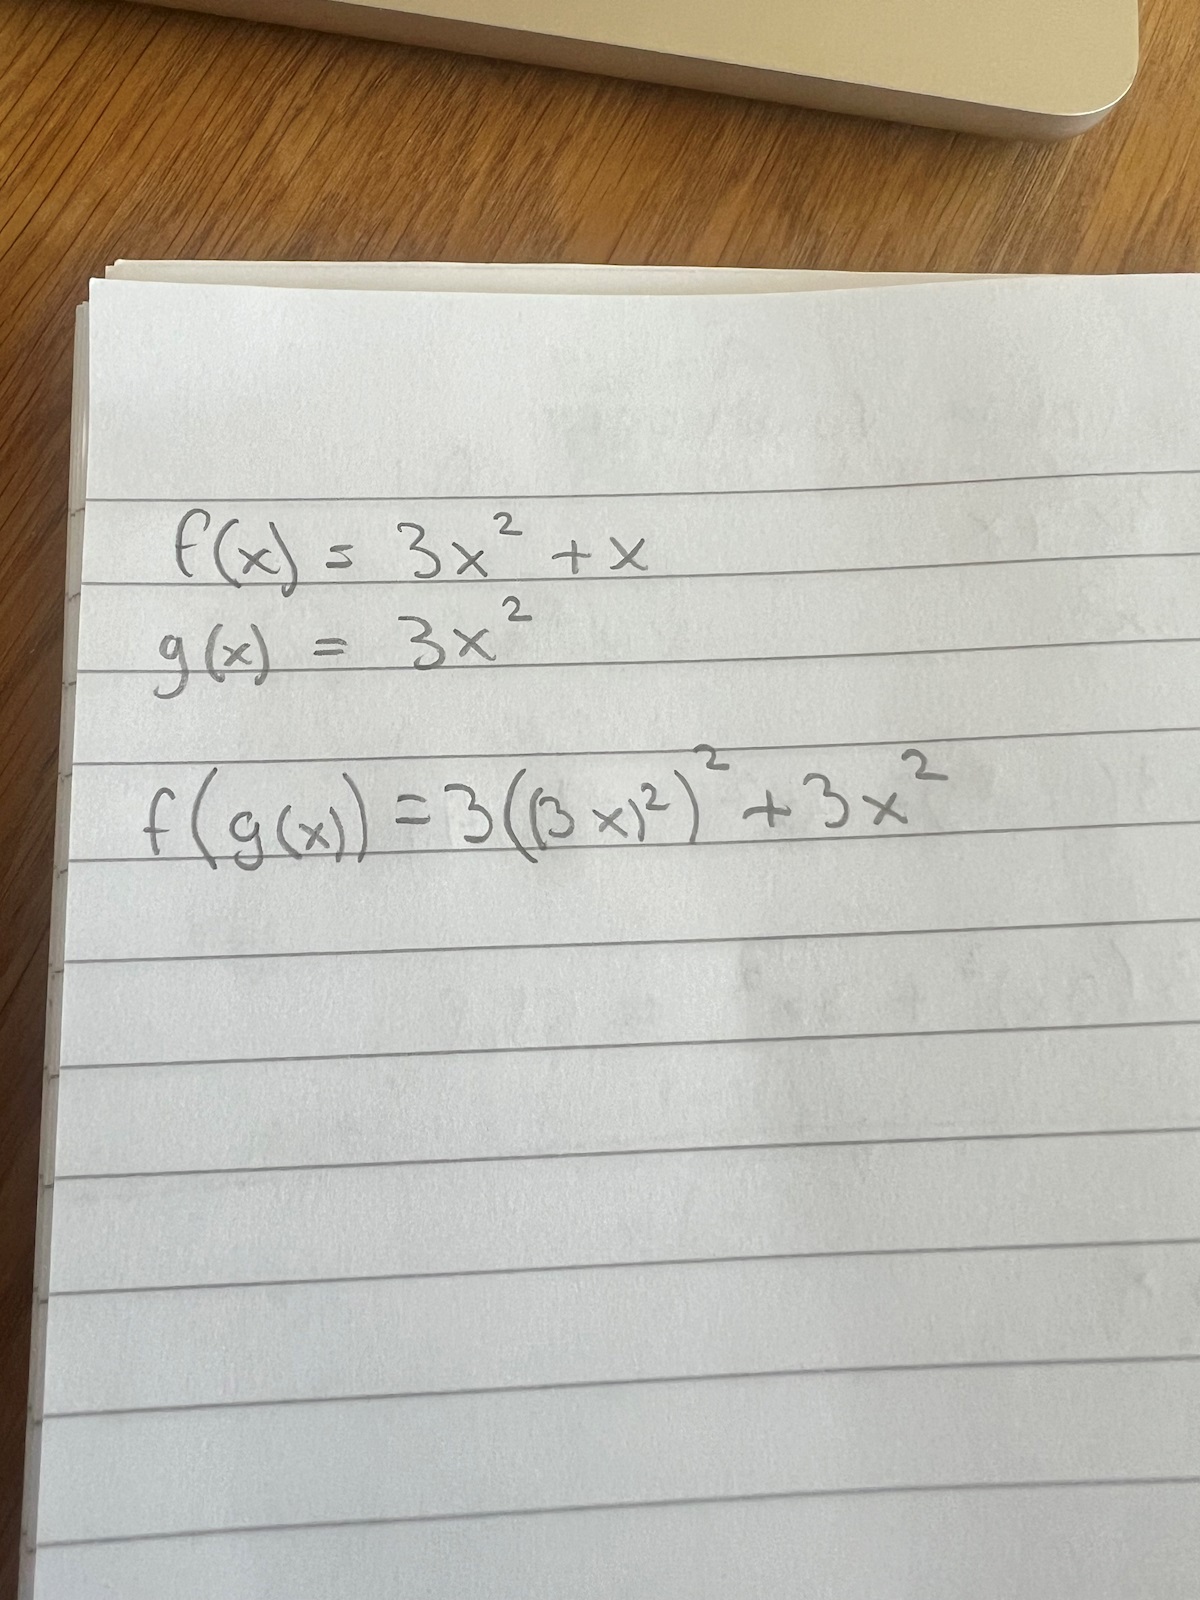 f(x) = 3x² + x
g(x) = 3x²
f(g(x)) = 3((3x)²)² + 3x²